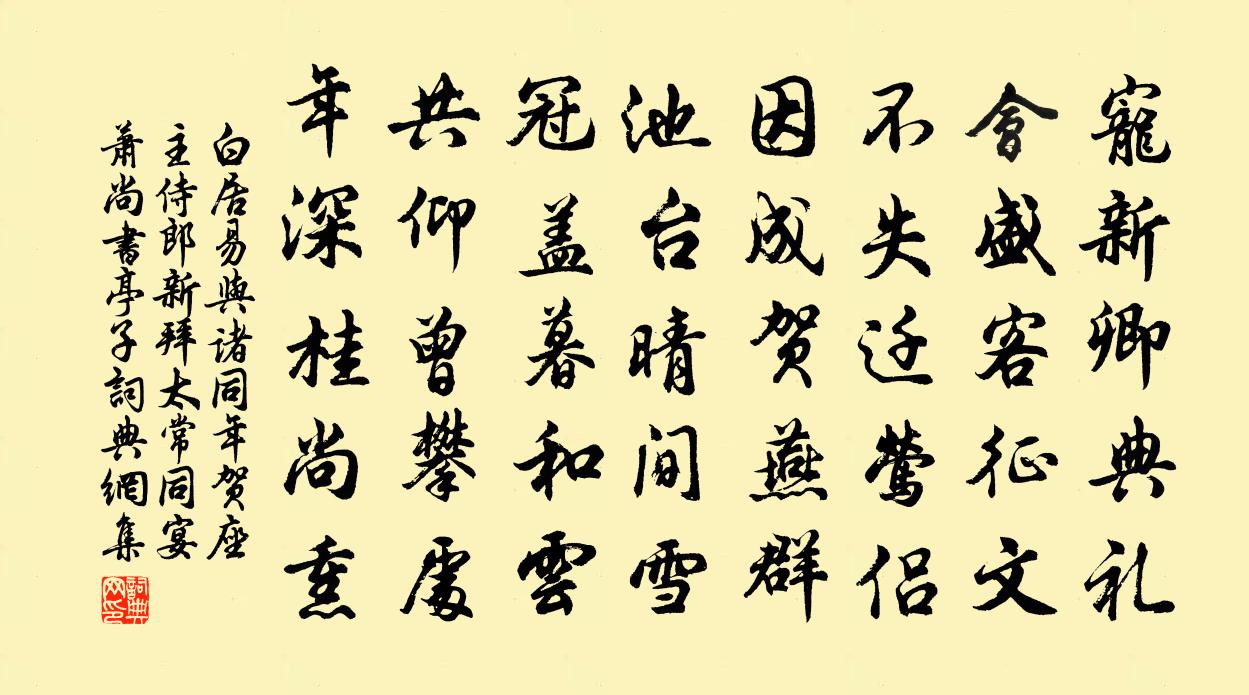 寵新卿典礼
會盛客征文
不失迁鶯侣
因成贺燕群
池台晴间雪
冠盖暮和雲
共仰曾攀處
年深桂尚熏
白居易與諸同年贺座
主侍郎新拜太常同宴
蕭尚書亭子詞典網集
詞典
网印